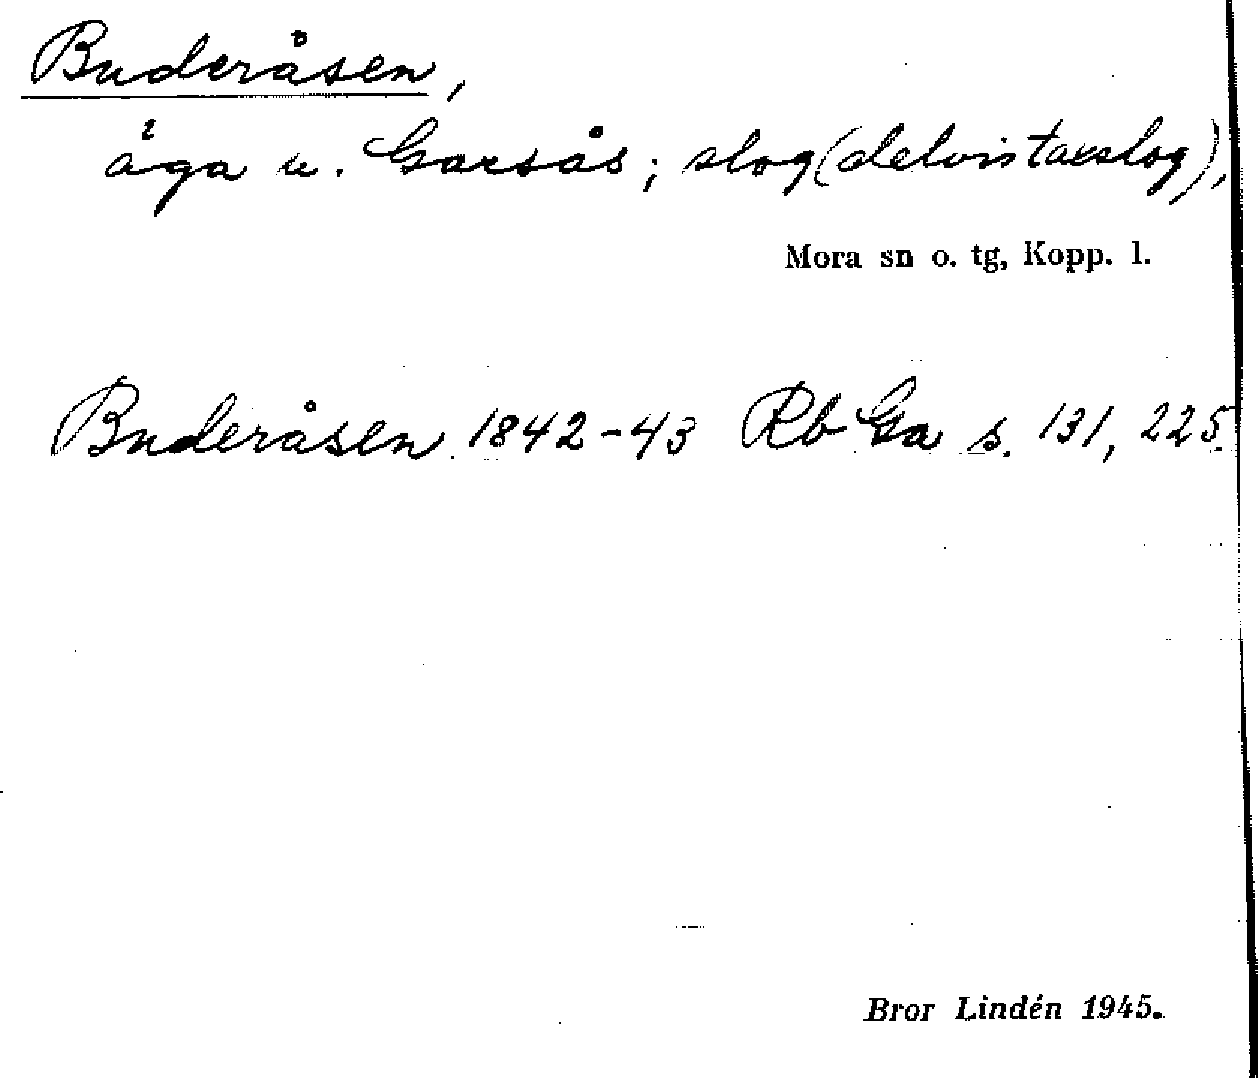 Buderåsen,
äga u. Garsås; slog (delvis taxslog),
Mora sn o. tg, Kopp. l.
Buderåsen 1842-43 Rb Ga s. 131, 225.
Bror Lindén 1945.